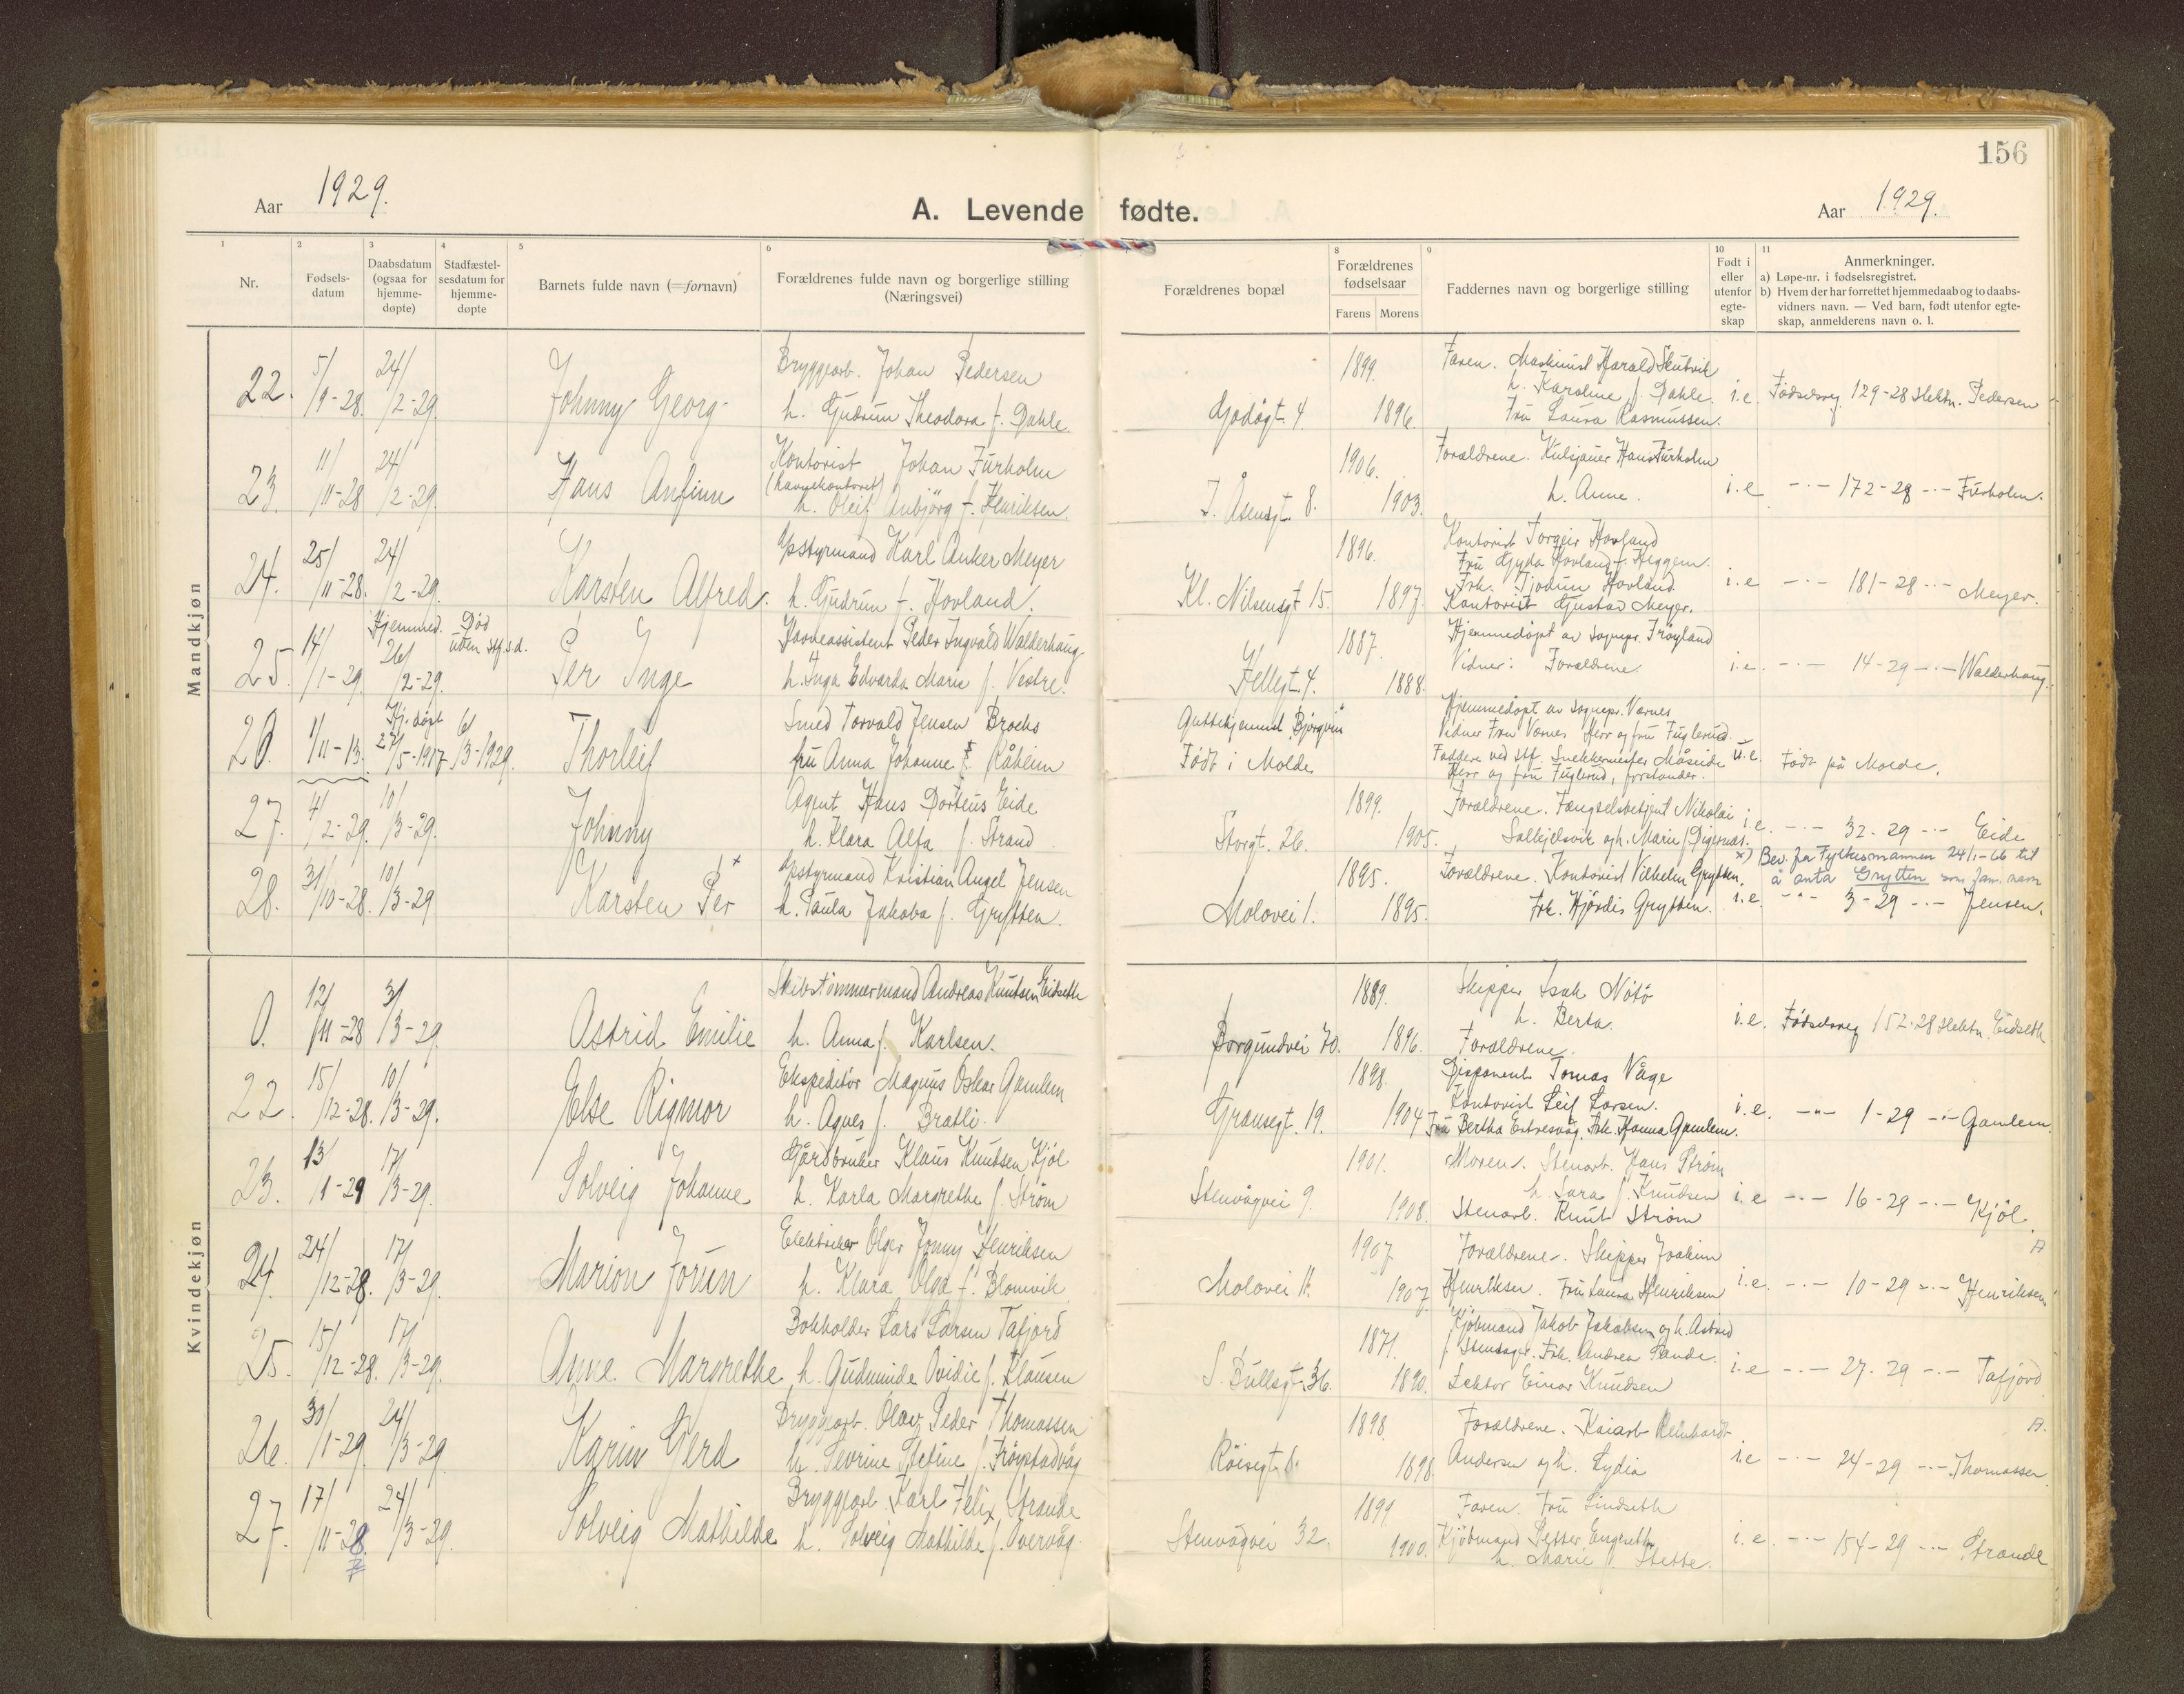 156
Aar 1929.
A. Levende fødte.
Aar 1929.
1 2 3 4 5 6 8 9 10 11
Nr.
Fødsels-
datum
Daabsdatum
(ogsaa for
hjemme-
døpte)
Stadfæstel-
sesdatum for
hjemme-
døpte
Barnets fulde navn (=fornavn)
Forældrenes fulde navn og borgerlige stilling
(Næringsvei)
Forældrenes bopæl
Forældrenes
fødselsaar
Farens Morens
Faddernes navn og borgerlige stilling
Født i
eller
utenfor
egte-
skap
Anmerkninger.
a) Løpe-nr. i fødselsregistret.
b) Hvem der har forrettet hjemmedaab og to daabs-
vidners navn. — Ved barn, født utenfor egte-
skap, anmelderens navn o. l.
Mandkjøn
22. 5/9-28. 24/2-29. Johnny Georg
Bryggearb. Johan Pedersen
h. Gudrun Theodora f. Dahle.
Godøgt. 4. 1899. 1896.
Faren. Maskinist Harald Skutvik
h. Karoline f. Dahle.
Fru Laura Rasmussen.
i.e. Fødselsreg. 129-28 Pedersen
23. 11/11-28 24/2-29. Hans Anfinn
Kontorist Johan Furholm
(havnekontoret)
h. Oleif Anbjörg f. Henriksen.
J. Åsensgt. 8. 1906. 1903.
Forældrene. Kulsjauer Hans Furholm
h. Anne.
i.e -"- 172-28 -"- Furholm.
24. 25/11-28. 24/2-29. Karsten Alfred.
Karl Anker Meyer
h. Gudrun f. Hovland.
Kl. Nilsensgt 15. 1896. 1897.
Kontorist Torgeir Hovland
Fru Gyda Hovland f. Heggem.
Frk. Hovland.
Kontorist Gustav Meyer.
i.e -"- 181-28 -"- Meyer.
25. 14/1-29. Hjemmed. 26/2-29. Død uten stf.s.d. Per Inge
Havneassistent Peder Ingvald Walderhaug
h. Inga Edvarda Marie f. Vestre.
Hellegt. 4. 1887. 1888.
Hjemmedøpt av sognepr. Frøyland
Vidner: Forældrene.
i.e. -"- 14-29 -"- Walderhaug.
26. 1/11-13. Hj. døpt 27/5-1917 6/3-1929. Thorleif
Smed Torvald Jensen Brochs
fru Anna Johanne f. Råheim
Guttehjemmet Bjørgvin
Født i Molde
Hjemmedøpt av sognepr. Værnes
Vidner Fru Værnes Herr og fru Fuglerud.
Faddere ved stf. Snekkermester Måseide
Herr og fru Fuglerud, forstander.
u.e. Født på Molde.
27. 4/2-29. 10/3-29. Johnny
Agent Hans Dorteus Eide
h. Klara Alfa f. Strand
Storgt. 26. 1899. 1905.
Forældrene. Fængselsbetjent Nikolai
og h. Marie f. Digernæs.
i.e. -"- 32-29 -"- Eide
28. 31/10-28. 10/3-29 Karsten Per x
Kristian Angel Jensen
h. Paula Jakoba f. Grytten.
Molovei 1. 1895. 1895.
Forældrene. Kontorist Vilhelm Grytten.
Frk. Hjørdis Grytten.
x) Bev. fra Fylkesmannen 24/1-66 til
å anta Grytten som fam. navn
i.e. -"- 3-29 -"- Jensen.
Kvindekjøn
0. 12/11-28 3/3-29. Astrid Emilie
Skibstømmermand Andreas Knutsen Eidseth
h. Anna f. Karlsen.
Borgundvei 70. 1889. 1896.
Skipper Isak Nötö
h. Berta.
Forældrene.
i.e. Fødselsreg 152-28 Eidseth
22. 15/12-28. 10/3-29. Else Rigmor
Ekspeditör Magnus Oskar Gamlem
h. Agnes f. Bratli.
Gransegt. 19. 1898. 1904
Disponent Tomas Våge
Kontorist Leif Larsen.
Fru Bertha Frk. Hanna Gamlem.
i.e. -"- 1-29 -"- Gamlem.
23. 13/1-29 17/3-29. Solveig Johanne
Gårdbruker Klaus Knutsen Kjøl
h. Karla Margrethe f. Strøm
Stenvågvei 9. 1901. 1908.
Moren. Stenarb. Hans Strøm
h. Sara f. Knudsen
Stenarb. Knut Strøm
i.e -"- 16-29 -"- Kjøl.
24. 24/12-28. 17/3-29. Marion Jorun
Elektriker Olger Jonny Henriksen
h. Klara Olga f. Blomvik
Molovei 11. 1907 1907
Forældrene. Skipper Joakim
Henriksen. Fru Laura Henriksen
i.e. -"- 10-29 -"- Henriksen
25. 15/12-28. 17/3-29. Anne Margrethe
Bokholder Lars Larsen Tafjord
h. Gudminde Ovidie f. Klausen
O. Bullsgt. 36. 1871. 1890.
Kjøbmand Jakob Jakobsen og h. Astrid
f. Stensager. Frk. Andrea Sande.
Lektor Einar Knudsen
i.e -"- 27-29 -"- Tafjord
26. 30/1-29. 24/3-29. Karin Gerd
Bryggearb. Olav Peder Thomassen
h. Sevrine f. Frøystadvåg
Röisegt 6. 1898. 1898.
Forældrene. Kaiarb Reinhardt
Andersen og h. Lydia
i.e -"- 24-29 -"- Thomassen
27. 17/11-28. 24/3-29. Solveig Mathilde
Bryggearb. Karl Felix Strande
h. Solveig Mathilde f. Overvåg
Stenvågvei 32. 1899 1900.
Faren. Fru Lindseth
Kjøbmand Petter
h. Marie f. Stette.
i.e. -"- 154-29 -"- Strande